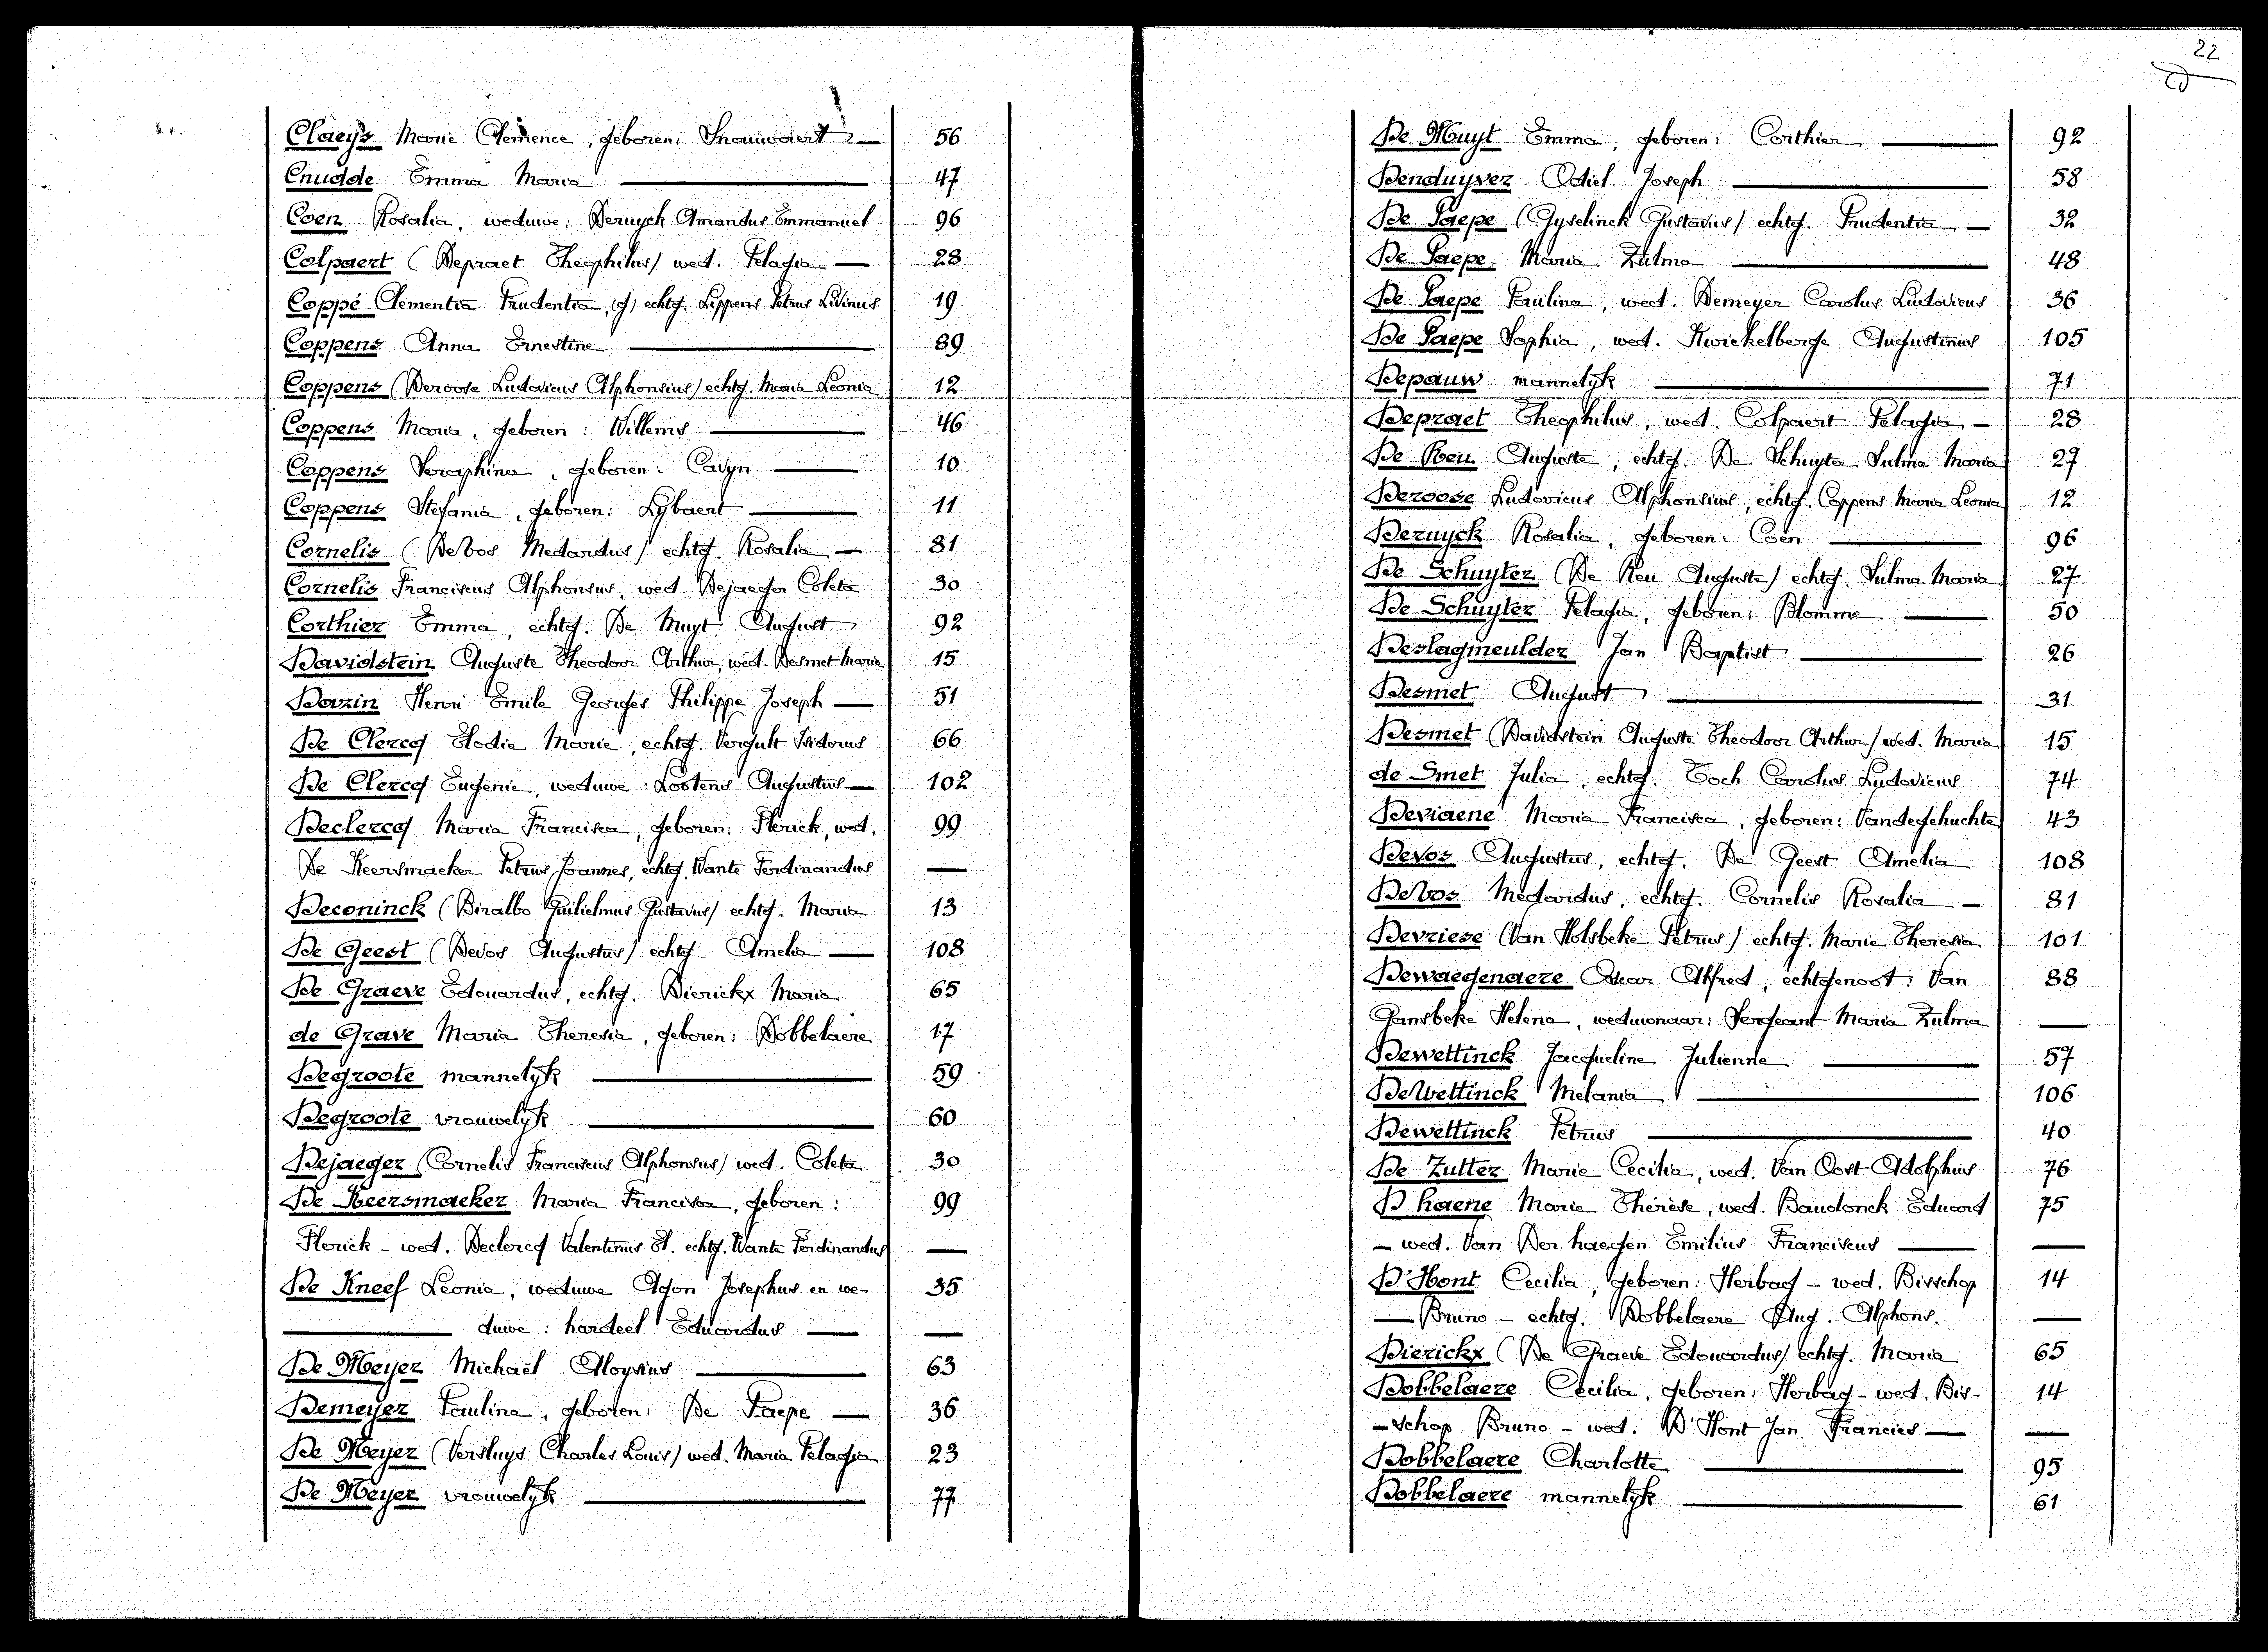 Claeys Marie Clemence, geboren: Snauwaert — 56
Cnudde Emma Maria — 47
Coen Rosalia, weduwe: Deruyck Amandus Emmanuel 96
Colpaert (Depraet Theophilus) wed. Pelagia — 28
Coppé Clementia Prudentia, (g) echtg. Lippens Petrus Livinus 19
Coppens Anna Ernestine — 89
Coppens (Deroose Ludovicus Alphonsius) echtg. Maria Leonia 12
Coppens Maria, geboren: Willems — 46
Coppens Seraphina, geboren: Cavyn — 10
Coppens Stefania, geboren: Lybaert — 11
Cornelis (DeVos Medardus) echtg. Rosalia — 81
Cornelis Franciscus Alphonsus, wed. Dejaeger Coleta 30
Corthier Emma, echtg. De Muyt August 92
Davidstein Auguste Theodoor Arthur, wed. Desmet Maria 15
Dazin Henri Emile Georges Philippe Joseph — 51
De Clercq Elodie Marie, echtg. Vergult Isidorus 66
De Clercq Eugenie, weduwe: Lootens Augustus — 102
Declercq Maria Francisca, geboren: Flerick, wed. 99
De Keersmaeker Petrus Joannes, echtg. Wante Ferdinandus —
Deconinck (Biralbo Guilielmus Gustavus) echtg. Maria 13
De Geest (Devos Augustus) echtg. Amelia — 108
De Graeve Edouardus, echtg. Dierickx Maria 65
de Grave Maria Theresia, geboren: Dobbelaere 17
Degroote mannelyk — 59
Degroote vrouwelyk — 60
Dejaeger (Cornelis Franciscus Alphonsus) wed. Coleta 30
De Keersmaeker Maria Francisca, geboren: 99
Flerick - wed. Declercq Valentinus St. echtg. Wante Ferdinandus —
De Kneef Leonia, weduwe Agon Josephus en we- 35
— duwe: hardeel Eduardus — —
De Meyer Michaël Aloysius — 63
Demeyer Paulina, geboren: De Paepe — 36
De Meyer (Versluys Charles Louis) wed. Maria Pelagia 23
De Meyer vrouwelyk — 77
22
De Muyt Emma, geboren: Corthier — 92
Denduyver Odiel Joseph — 58
De Paepe (Gyselinck Gustavus) echtg. Prudentia — 32
De Paepe Maria Zulma — 48
De Paepe Paulina, wed. Demeyer Carolus Ludovicus 36
De Paepe Sophia, wed. Kwickelberge Augustinus 105
Depauw mannelyk — 71
Depraet Theophilus, wed. Colpaert Pelagia — 28
De Reu Auguste, echtg. De Schuyter Sulma Maria 27
Deroose Ludovicus Alphonsius, echtg. Coppens Maria Leonia 12
Deruyck Rosalia, geboren: Coen — 96
De Schuyter (De Reu Auguste) echtg. Sulma Maria 27
De Schuyter Pelagia, geboren: Blomme — 50
Deslagmeulder Jan Baptist — 26
Desmet August — 31
Desmet (Davidstein Auguste Theodoor Arthur) wed. Maria 15
de Smet Julia, echtg. Toch Carolus Ludovicus 74
Deviaene Maria Francisca, geboren: Vandegehuchte 43
Devos Augustus, echtg. De Geest Amelia 108
DeVos Medardus, echtg. Cornelis Rosalia — 81
Devriese (Van Holsbeke Petrus) echtg. Marie Theresia 101
Dewaegenaere Oscar Alfred, echtgenoot: Van 88
Gansbeke Helena, weduwnaar: Sergeant Maria Zulma —
Dewettinck Jacqueline Julienne — 57
DeWettinck Melania — 106
Dewettinck Petrus — 40
De Zutter Marie Cecilia, wed. Van Oost Adolphus 76
D haene Marie Thérèse, wed. Baudonck Eduard 75
— wed. Van Der haegen Emilius Franciscus — —
D'Hont Cecilia, geboren: Herbag - wed. Bisschop 14
— Bruno - echtg. Dobbelaere Aug. Alphons. —
Dierickx (De Graeve Edouardus) echtg. Maria 65
Dobbelaere Cecilia, geboren: Herbag - wed. Bis- 14
-schop Bruno - wed. D'Hont Jan Francies — —
Dobbelaere Charlotte — 95
Dobbelaere mannelyk — 61